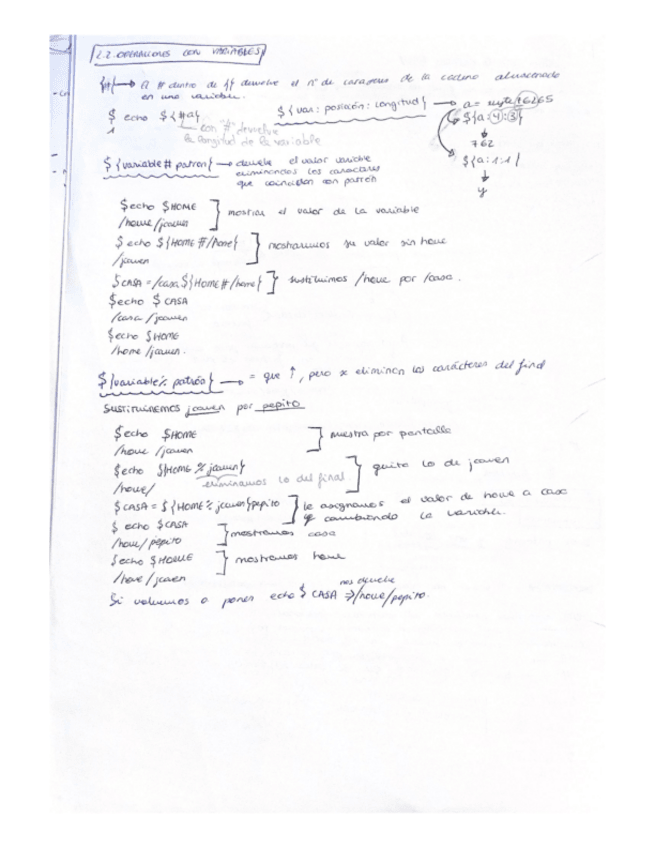 2.2. OPERACIONES CON VARIABLES
{#} → El # dentro de {} devuelve el nº de caracteres de la cadena almacenada
en una variable.
$ echo ${#a}
1
con "#" devuelve
la longitud de la variable
${var: posición: longitud} → a=
${a:4:3}
↓
762
${a:1:1}
↓
y
${variable # patron} → devuelve el valor variable
eliminando los caracteres
que coinciden con patrón
$echo $HOME
/home/jcaren ] mostrar el valor de la variable
$ echo ${HOME #/home}
/jcaren ] mostramos su valor sin home
$CASA=/casa ${HOME#/home} ] sustituimos /home por /casa.
$echo $CASA
/casa /jcaren
$echo $HOME
/home /jcaren.
${variable % patrón} → = que ↑, pero se eliminan los carácteres del final
SUSTITUIREMOS jcaren por pepito
$echo $HOME
/home /jcaren ] muestra por pantalla
$echo ${HOME % jcaren}
/home/ eliminamos lo del final ] quita lo de jcaren
$ CASA = ${HOME % jcaren}pepito ] le asignamos el valor de home a casa
cambiando la variable.
$ echo $CASA
/home/ pepito ] mostramos casa
$echo $HOME
/home /jcaren ] mostramos home
Si volvemos a poner echo $ CASA ⇒ /home/pepito.